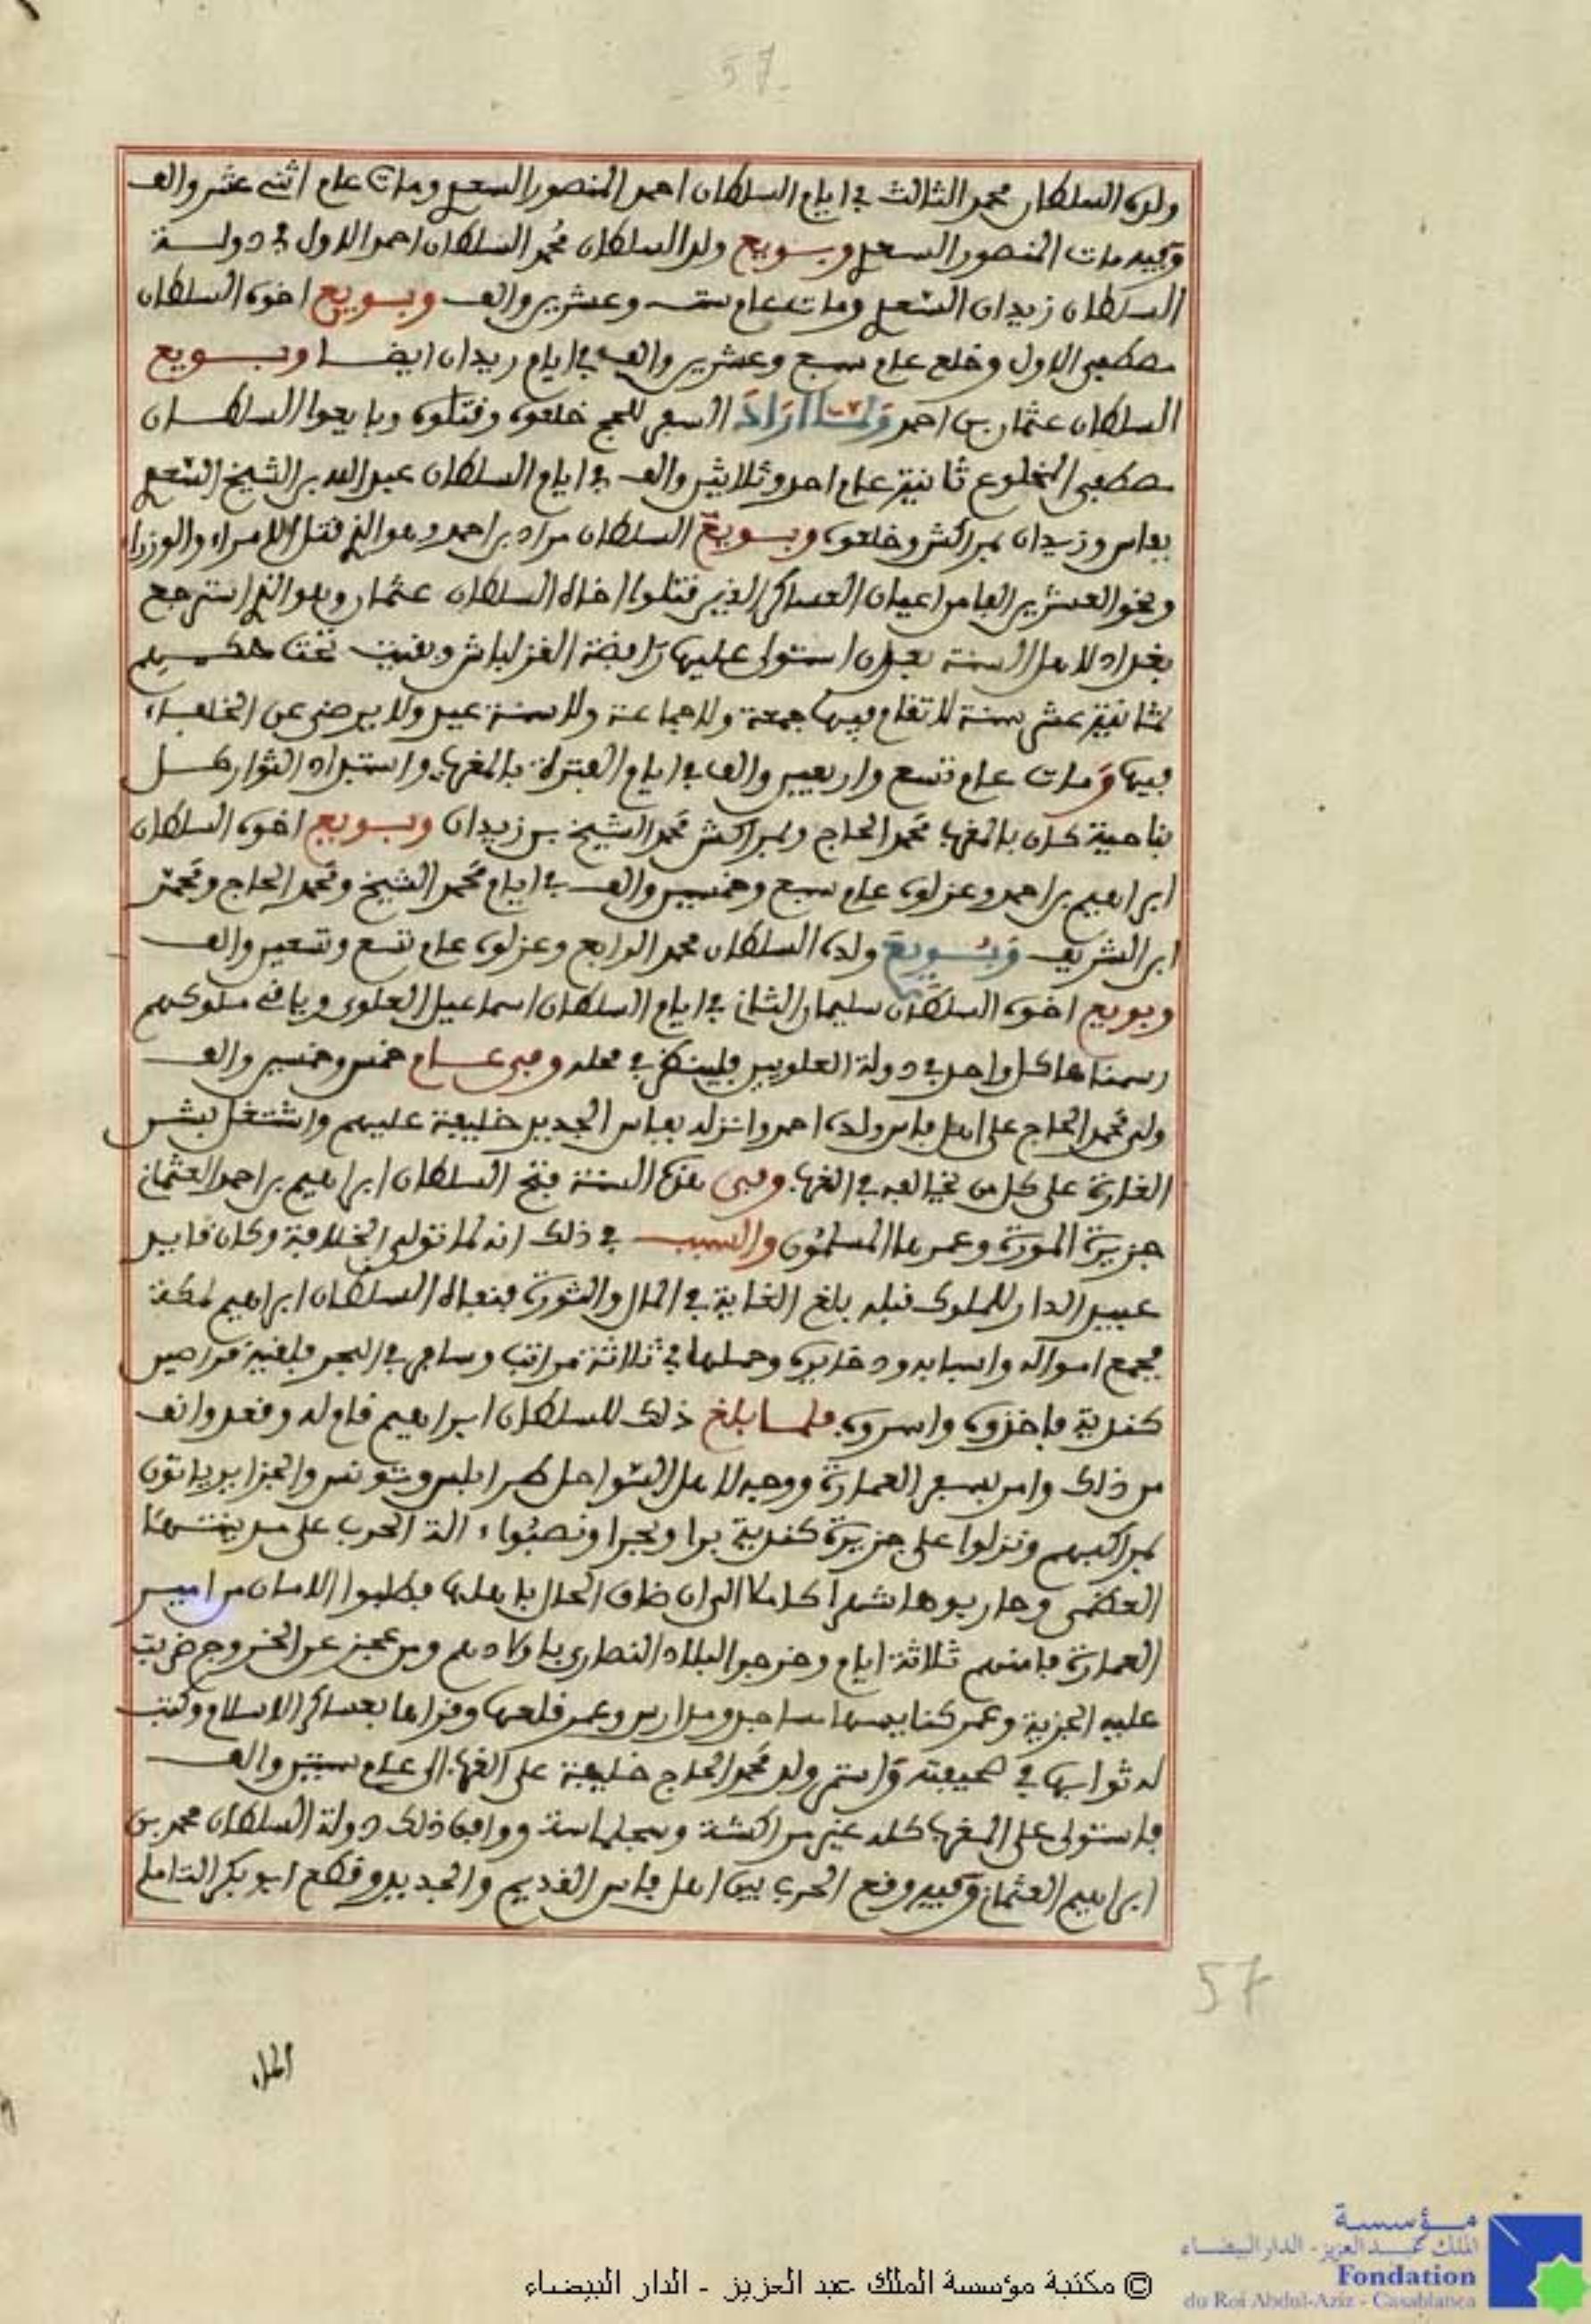 57
ولده السلطان محمد الثالث في ايام السلطان احمد المنصور السعدي ومات عام اثنى عشر والف
وفيه مات المنصور السعدي وبويع ولد السلطان محمد السلطان احمد الاول في دولة
السلطان زيدان السعدي ومات عام ست وعشرين والف وبويع اخوه السلطان
مصطفى الاول وخلع عام سبع وعشرين والف في ايام زيدان ايضا وبويع
السلطان عثمان بن احمد ولما اراد السفر للحج خلعوه وقتلوه وبايعوا السلطان
مصطفى المخلوع ثانية عام احد وثلاثين والف في ايام السلطان عبد الله بن الشيخ السعدي
بفاس وزيدان بمراكش وخلعوه وبويع السلطان مراد بن احمد وهو الذي قتل الامراء والوزرا
ونحو العشرين الفا من اعيان العساكر الذين قتلوا اخاه السلطان عثمان وهو الذي استرجع
بغداد لاهل السنة بعد ان استولى عليها رافضة القزلباش وبقيت تحت حكمهم
ثمانية عشر سنة لا تقام فيها جمعة ولا جماعة ولا سنة عيد ولا يرضى عن الخلفاء
فيها ومات عام تسع واربعين والف في ايام الفترة بالمغرب واستبداد الثوار كل
بناحية كان بالمغرب محمد الحاج وبمراكش محمد الشيخ بن زيدان وبويع اخوه السلطان
ابراهيم بن احمد وعزلوه عام سبع وخمسين والف في ايام محمد الشيخ ومحمد الحاج ومحمد
ابن الشريف وبويع ولده السلطان محمد الرابع وعزلوه عام تسع وتسعين والف
وبويع اخوه السلطان سليمان الثاني في ايام السلطان اسماعيل العلوي وباقى ملوكهم
رسمناها كل واحد في دولة العلويين فلينظر في محله وفى عام خمس وخمسين والف
ولى محمد الحاج على اهل فاس ولده احمد وانزله بفاس الجديد خليفة عليهم واشتغل بشن
الغارة على كل من خالفه في الغرب وفى هذه السنة فتح السلطان ابراهيم بن احمد العثماني
جزيرة المورة وعمرها المسلمون والسبب في ذلك انه لما تولى الخلافة وكان قايد
عبيد الدار للملوك قبله بلغ الغاية في المال والثورة فنفاه السلطان ابراهيم لمكة
فجمع امواله واسبابه وذخايره وحملها في ثلاثة مراكب وسافر في البحر فلقيه قراصين
كندية فاخذوه واسروه فلما بلغ ذلك للسلطان ابراهيم قام له وقعد وانف
من ذلك وامر بسفر العمارة ووجه لاهل السواحل طرابلس وتونس والجزاير ياتون
بمراكبهم ونزلوا على جزيرة كندية برا وبحرا ونصبوا ءالة الحرب على مدينتها
العظمى وحاربوها شهرا كاملا الى ان ضاق الحال باهلها فطلبوا الامان من امير
العمارة فامنهم ثلاثة ايام وخرجوا لبلاد النصارى باولادهم ومن عجز عن الخروج ضربت
عليه الجزية وعمر كنايسها مساجد ومدارس وعمر قلعها وقراها بعساكر الاسلام وكتب
له ثوابها في صحيفته واستمر ولد محمد الحاج خليفة على الغرب الى عام ستين والف
فاستولى على المغرب كله غير مراكشة وسجلماسة ووافق ذلك دولة السلطان محمد بن
ابراهيم العثماني وفيه وقع الحرب بين اهل فاس القديم والجديد وقطع ابو بكر التاملي
57
الماء
مؤسسة
الملك عبد العزيز - الدار البيضاء
Fondation
du Roi Abdul-Aziz - Casablanca
© مكتبة مؤسسة الملك عبد العزيز - الدار البيضاء